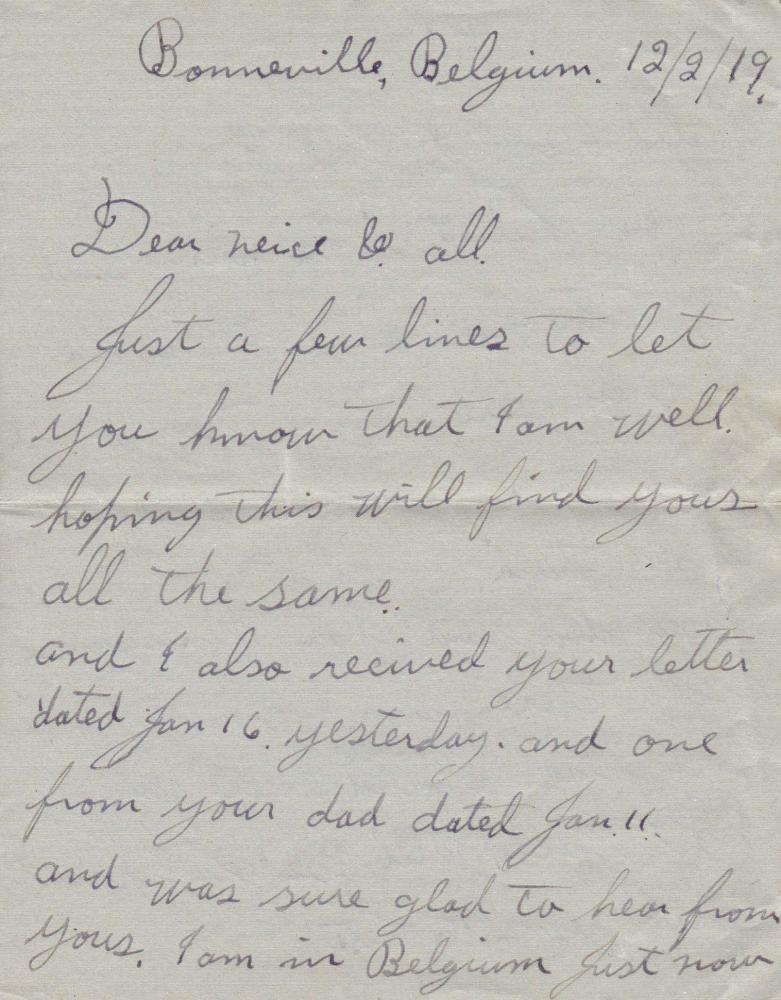 Bonneville, Belgium. 12/2/19.
Dear neice & all.
Just a few lines to let
you know that I am well.
hoping this will find yous
all the same.
and I also recived your letter
dated Jan 16. yesterday. and one
from your dad dated Jan. 11.
and was sure glad to hear from
yous. I am in Belgium just now